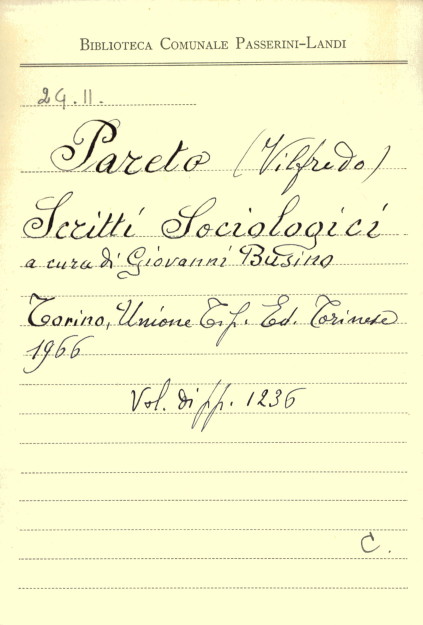 BIBLIOTECA COMUNALE PASSERINI-LANDI
2G.II.
Pareto (Vilfredo)
Scritti Sociologici
a cura di Giovanni Busino
Torino, Unione Tip. Ed. Torinese
1966
Vol. di pp. 1236
C.